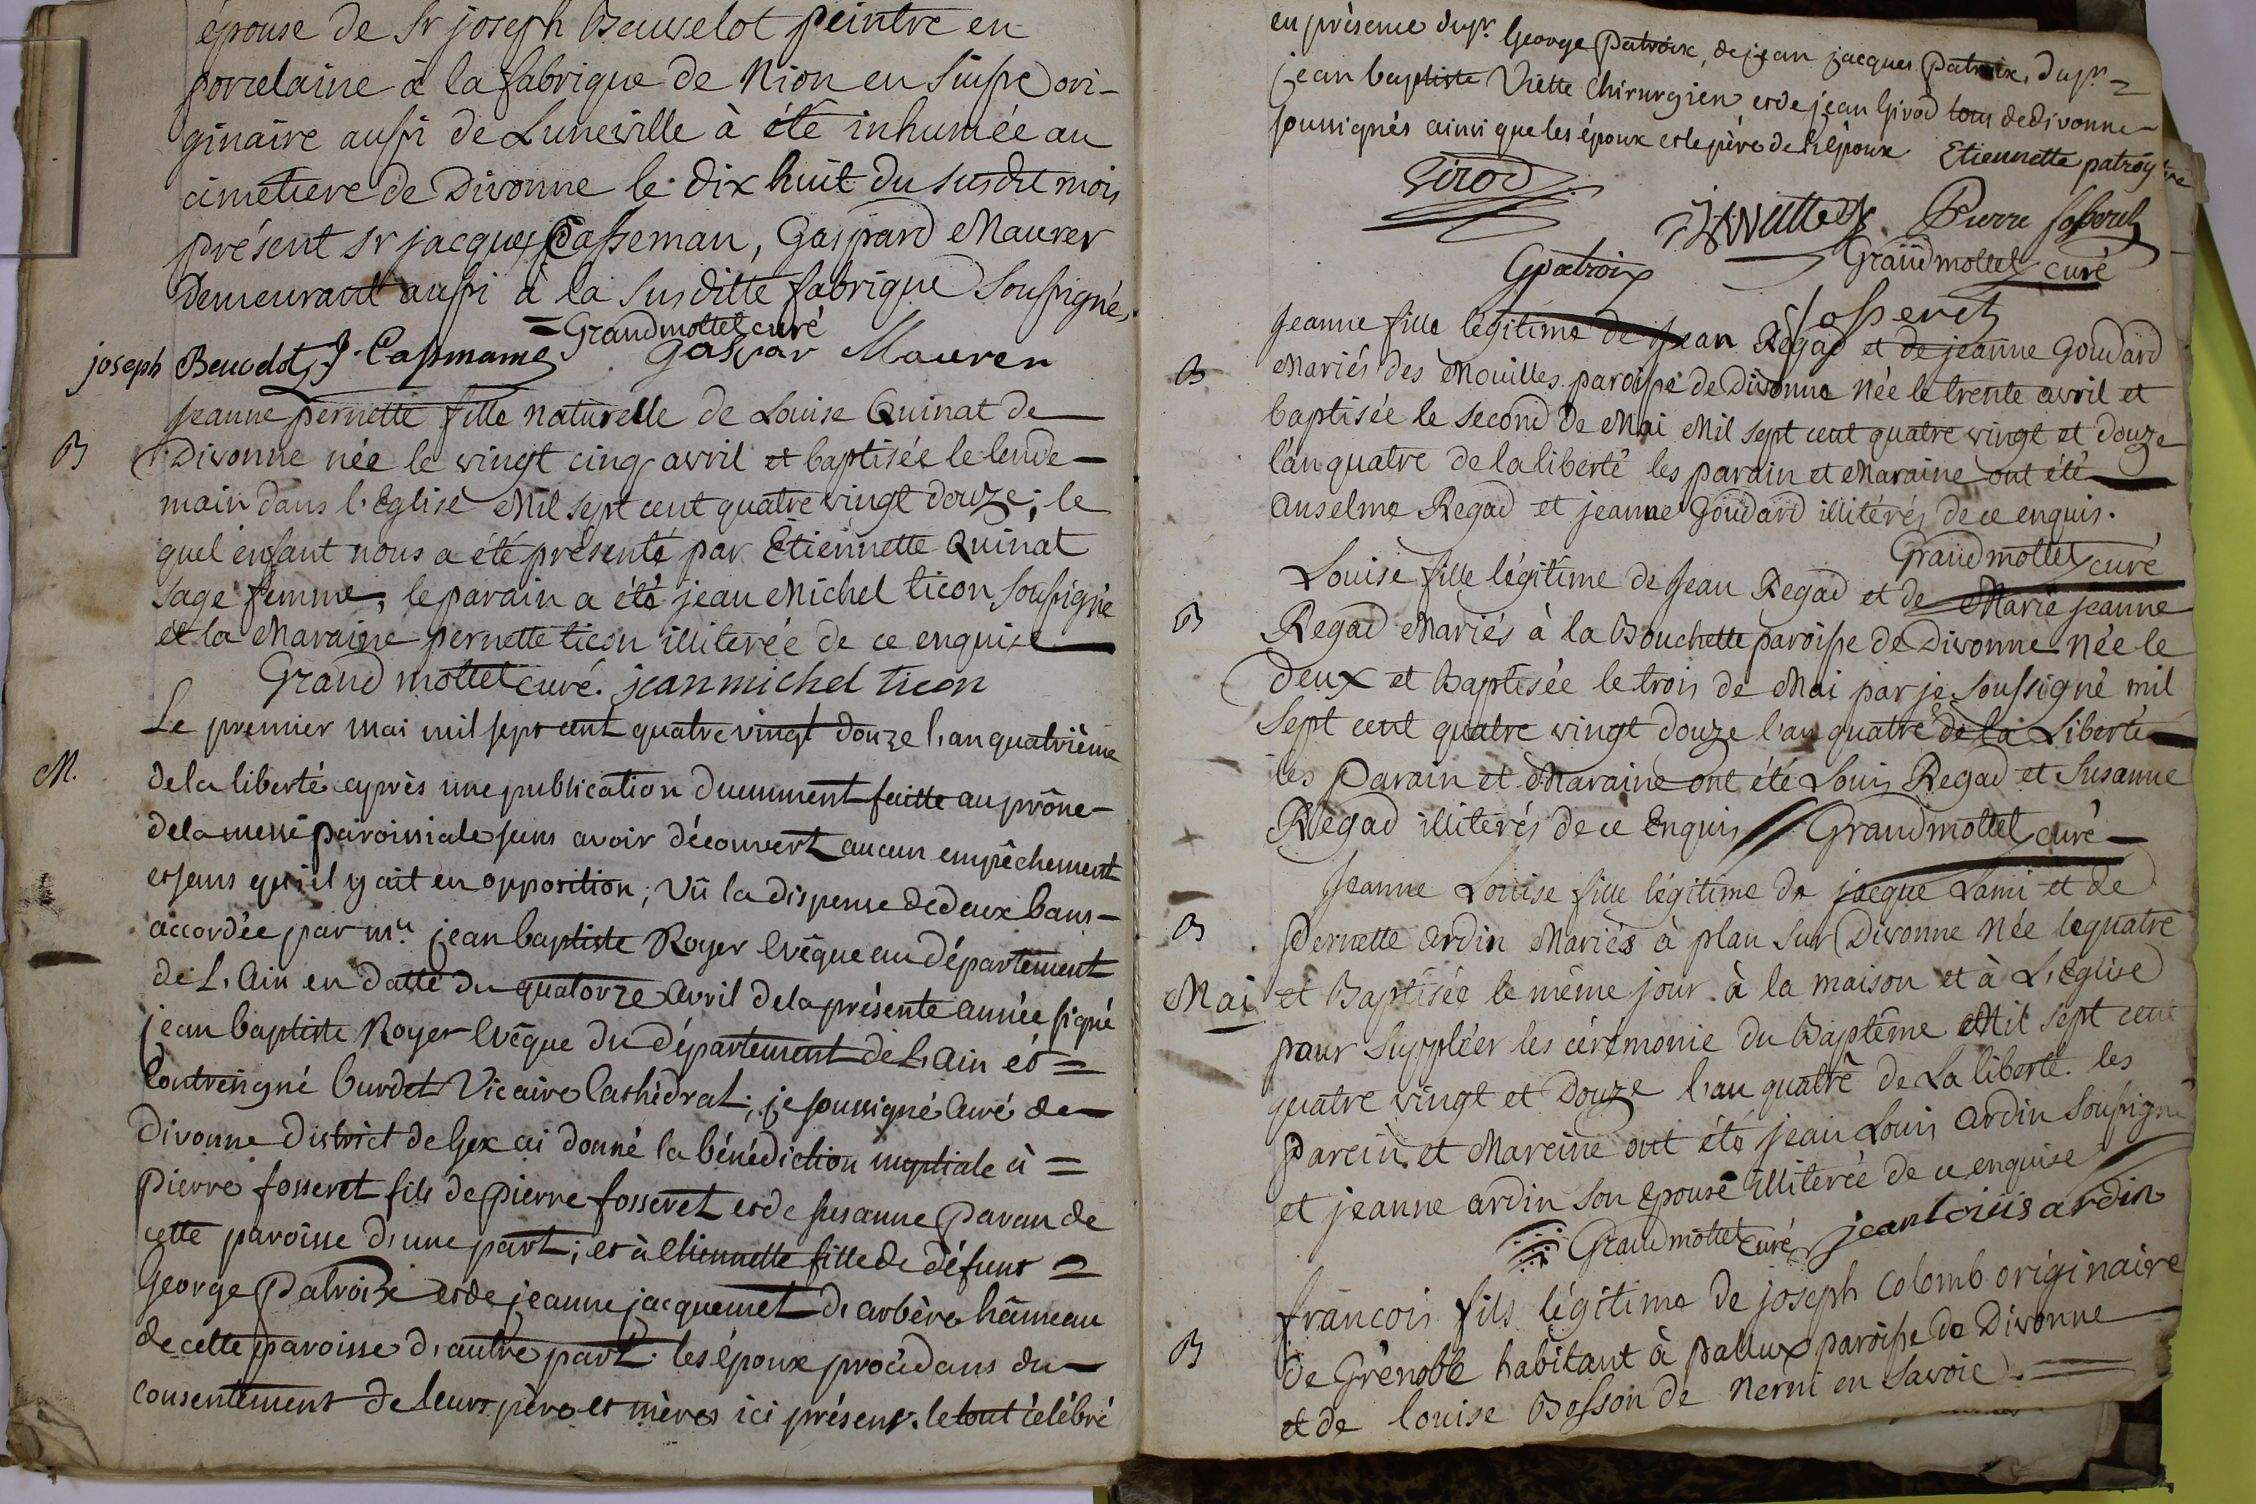 épouse de Sr joseph Bauvelot peintre en
porcelaine à la fabrique de Nion en Suisse ori-
ginaire aussi de Luneville à été inhumée au
cimetiere de Divonne le dix huit du susdit mois
présent Sr jacques Casseman, Gaspard Maurer
demeurant aussi à la susditte fabrique soussignés.
= Grandmottet curé
joseph Beuvelot, J. Cassmame Gaspar Maurer
B
Jeanne pernette fille naturelle de Louise Quinat de
Divonne née le vingt cinq avril et baptisée le lende-
main dans l'Eglise Mil sept cent quatre vingt douze; le
quel enfant nous a été présenté par Etiennette Quinat
sage femme, le parain a été jean Michel ticon soussigné
et la Maraine pernette ticon illiterée de ce enquise
Grandmottet curé. jean michel ticon
M.
Le premier mai mil sept cent quatre vingt douze l'an quatrième
de la liberté après une publication duemment faitte au prône
de la messe paroissiale sans avoir découvert aucun empêchement
et sans qu'il y ait eu opposition; Vû la dispense de deux bans-
accordée par mr. jean baptiste Royer Evêque au département
de L'Ain en datte du quatorze avril de la présente année signé
jean baptiste Royer Evêque du département de L'Ain et =
Contresigné burdet Vicaire Cathédral; je soussigné Curé de
Divonne District de Gex ai donné la bénédiction nuptiale à =
Pierre fosseret fils de pierre fosseret et de susanne Pavan de
cette paroisse d'une part; et à Etiennette fille de défunt =
George Patroix et de jeanne jacquemet d'arbère hâmeau
de cette paroisse d'autre part. les époux procédans du
consentement de leurs père et mères ici présens. le tout célébré
en présence du sr. George Patroix, de jean jacques Patroix, du sr =
jean baptiste Viette Chirurgien et de jean Girod tous de divonne
soussignés ainsi que les époux et le père de l'époux Etiennette patroy
Girod
Pierre fosseret
Gpatroix
Grandmottet curé
fosseret
B
Jeanne fille légitime de Jean Regad et de jeanne Goudard
Mariés des Mouilles paroisse de Divonne Née le trente avril et
baptisée le second de Mai Mil sept cent quatre vingt et douze
l'an quatre de la liberté les parain et Maraine ont été
Anselme Regad et jeanne Goudard illitérés de ce enquis.
Grandmottet curé
B
Louise fille légitime de Jean Regad et de Marie jeanne
Regad Mariés à la Bouchette paroisse de Divonne Née le
Deux et Baptisée le trois de Mai par je soussigné mil
sept cent quatre vingt douze l'an quatre de la Liberté
les Parain et Maraine ont été Louis Regad et Susanne
Regad illiterés de ce Enquis // Grandmottet curé
B
Jeanne Louise fille légitime de jacque Lami et de
Pernette Ardin Mariés à plan sur Divonne Née le quatre
Mai
et Baptisée le même jour à la maison et à L'Eglise
pour suppléer les cérémonie du Baptême Mil sept cent
quatre vingt et Douze l'an quatre de la liberté. les
Parein et Mareine ont été jean Louis Ardin Soussigné
et jeanne ardin son Epouse illiterée de ce enquise
Grandmottet curé jean louis ardin
B
francois fils légitime de joseph Colomb originaire
de Grenoble habitant à pallux paroisse de Divonne
et de louise Bosson de Nerni en Savoie